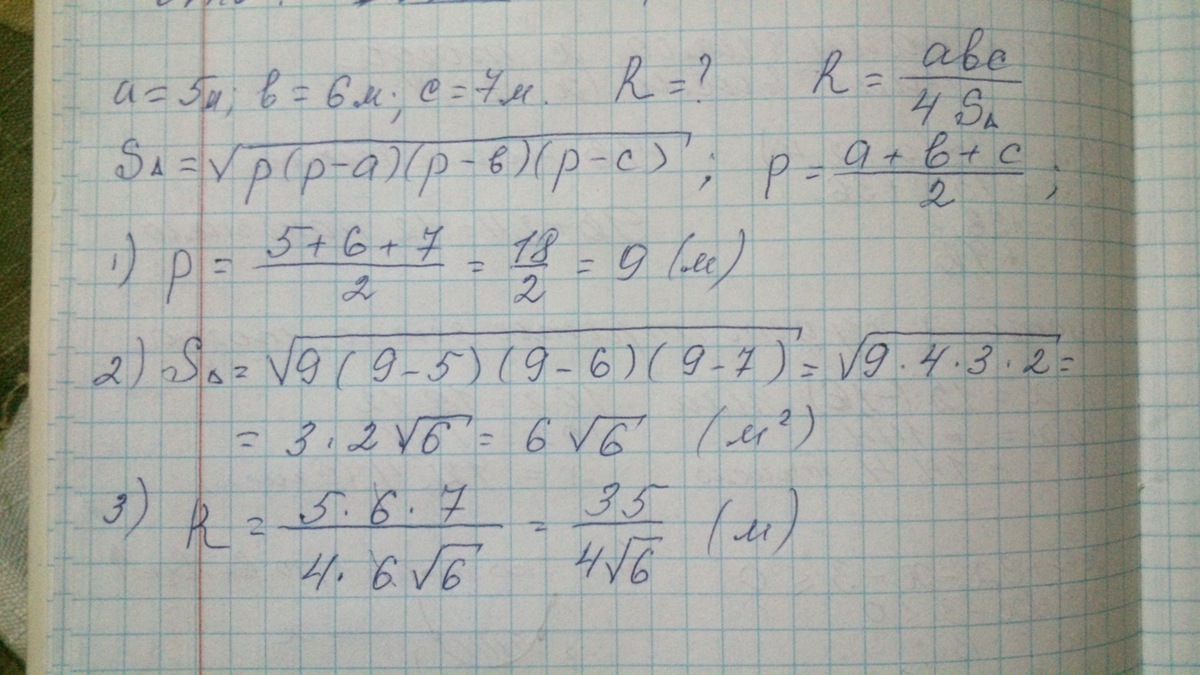 a = 5м; в = 6м; с = 7м. R = ? R = авс / 4 S△
S△ = √p(p-a)(p-в)(p-c); p = а + в + с / 2;
1) p = 5+6+7 / 2 = 18/2 = 9 (м)
2) S△ = √9(9-5)(9-6)(9-7) = √9·4·3·2 =
= 3·2√6 = 6√6 (м²)
3) R = 5·6·7 / 4·6√6 = 35 / 4√6 (м)